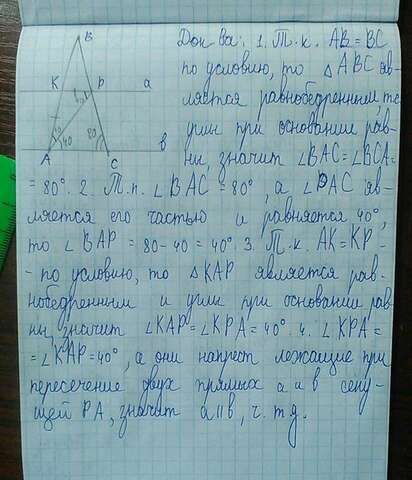 B
Док-ва: 1. Т.к. AB = BC
по условию, то △ABC яв-
K P a
ляется равнобедренным, т.е.
углы при основании рав-
40 80 в
ны значит ∠BAC = ∠BCA =
A C
= 80°. 2. Т.к. ∠BAC = 80°, а ∠PAC яв-
ляется его частью и равняется 40°,
то ∠BAP = 80-40 = 40°. 3. Т.к. AK = KP -
- по условию, то △KAP является рав-
нобедренным и углы при основании рав-
ны, значит ∠KAP = ∠KPA = 40°. 4. ∠KPA =
= ∠KAP = 40°, а они напрест лежащие при
пересечение двух прямых a и в секу-
щей PA, значит a || в, ч. т.д.